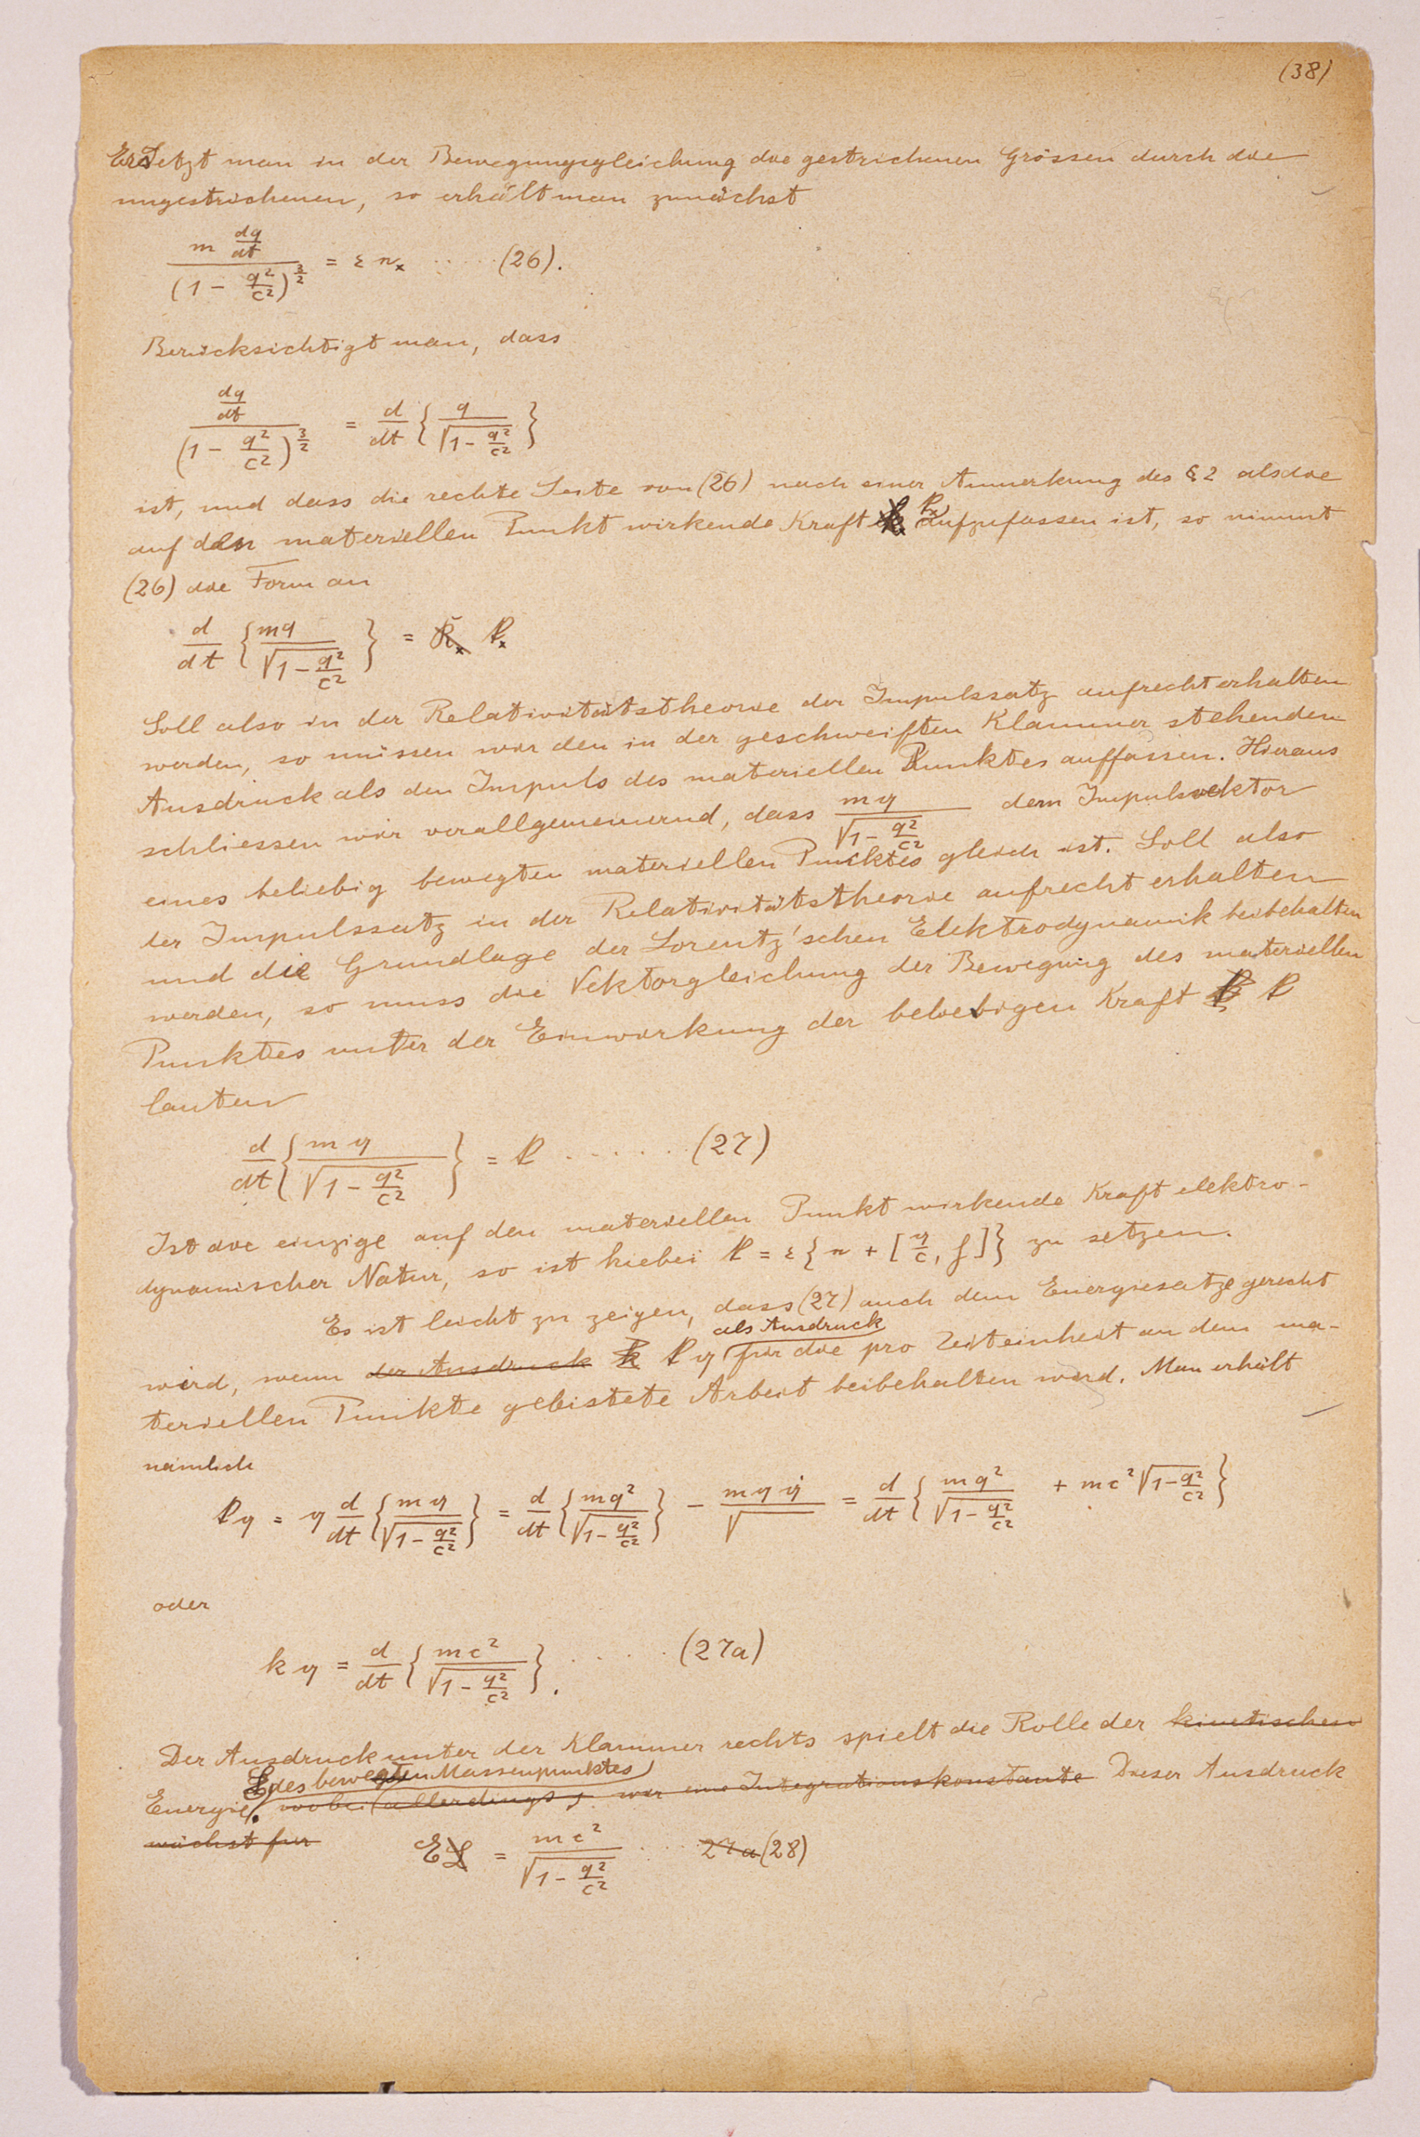 (38)
Ersetzt man in der Bewegungsgleichung die gestrichenen Grössen durch die
ungestrichenen, so erhält man zunächst
m dq/dt / (1 - q²/c²)^(3/2) = ε n_x ····· (26).
Berücksichtigt man, dass
dq/dt / (1 - q²/c²)^(3/2) = d/dt { q / √(1 - q²/c²) }
ist, und dass die rechte Seite von (26) nach einer Anmerkung des § 2 als die
auf den materiellen Punkt wirkende Kraft 𝔨_x aufzufassen ist, so nimmt
(26) die Form an
d/dt { mq / √(1 - q²/c²) } = K_x 𝔨_x
Soll also in der Relativitätstheorie der Impulssatz aufrecht erhalten
werden, so müssen wir den in der geschweiften Klammer stehenden
Ausdruck als den Impuls des materiellen Punktes auffassen. Hieraus
schliessen wir verallgemeinernd, dass m𝔮 / √(1 - q²/c²) dem Impulsvektor
eines beliebig bewegten materiellen Punktes gleich ist. Soll also
der Impulssatz in der Relativitätstheorie aufrecht erhalten
und die Grundlage der Lorentz'schen Elektrodynamik beibehalten
werden, so muss die Vektorgleichung der Bewegung des materiellen
Punktes unter der Einwirkung der beliebigen Kraft 𝔨
lauten
d/dt { m𝔮 / √(1 - q²/c²) } = 𝔨 ······ (27)
Ist die einzige auf den materiellen Punkt wirkende Kraft elektro-
dynamischer Natur, so ist hiebei 𝔨 = ε { n + [𝔮/c, f] } zu setzen.
Es ist leicht zu zeigen, dass (27) auch dem Energiesatze gerecht
als Ausdruck
wird, wenn der Ausdruck 𝔨 𝔨𝔮 für die pro Zeiteinheit an dem ma-
teriellen Punkte geleistete Arbeit beibehalten wird. Man erhält
nämlich
𝔨𝔮 = 𝔮 d/dt { m𝔮 / √(1 - q²/c²) } = d/dt { mq² / √(1 - q²/c²) } - m𝔮𝔮̇ / √ = d/dt { mq² / √(1 - q²/c²) + mc² √(1 - q²/c²) }
oder
k𝔮 = d/dt { mc² / √(1 - q²/c²) }. ····· (27a)
Der Ausdruck unter der Klammer rechts spielt die Rolle der kinetischen
des bewegten Massenpunktes
Energie, wobei (allerdings, wir eine Integrationskonstante Dieser Ausdruck
wächst für
E L = mc² / √(1 - q²/c²) ··· 27a (28)